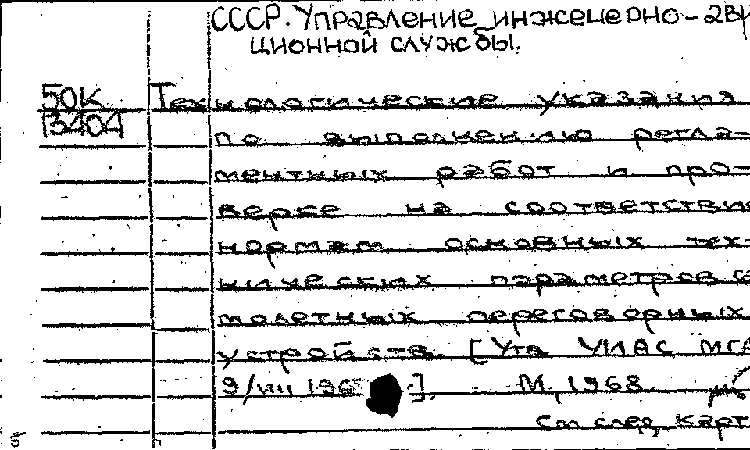 СССР. Управление инженерно-ави
ционной службы.
50К Технологические указания
13404 по выполнению регла-
ментных работ и про-
верке на соответствие
нормам основных тех-
нических параметров са
молетных переговорных
устройств. [Утв УИАС МГА
9/VIII 196 .]. М., 1968.
См след. карт